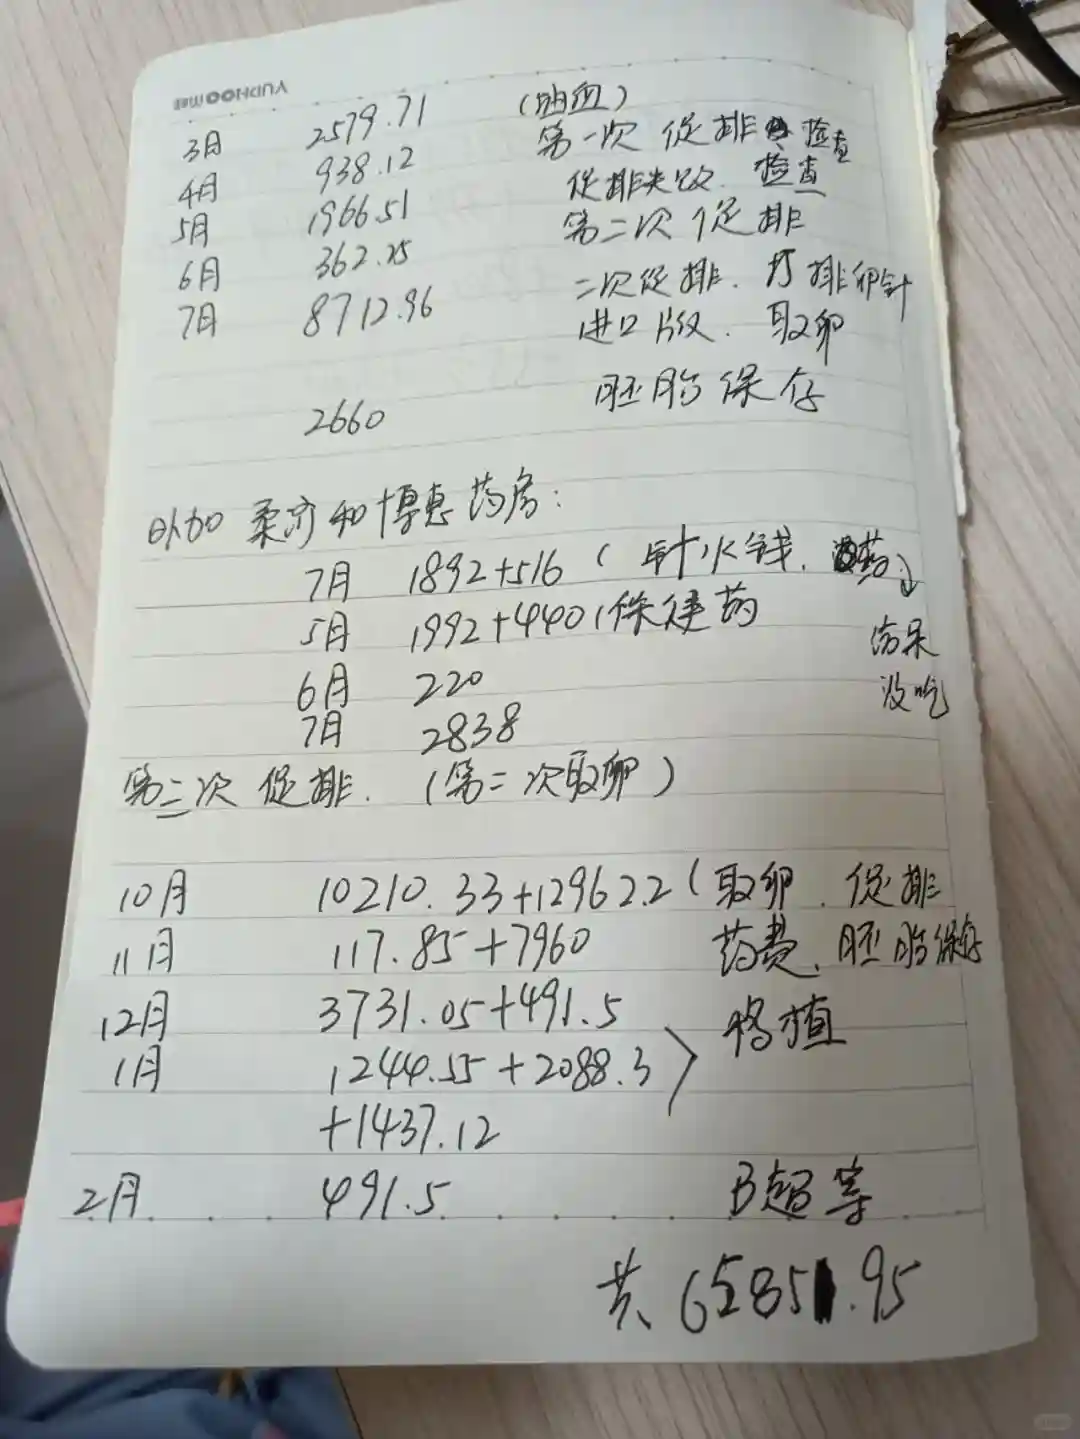 YUPHOO
3月 2579.71 (抽血)
4月 938.12 第一次促排 检查
5月 1966.51 促排失败. 检查
6月 362.25 第二次促排
7月 8712.96 二次促排. 打排卵针
进口版. 取卵
2660 胚胎保存
外加柔济和博惠药房:
7月 1892+516 (针水钱. 药)
5月 1992+440 (保建药 结果
6月 220 没吃
7月 2838
第三次促排. (第二次取卵)
10月 10210.33+12962.2 (取卵. 促排
11月 117.85+7960 药费、胚胎保存
12月 3731.05+491.5 移植
1月 1244.55+2088.3
+1437.12
2月 491.5 B超等
共 65851.95